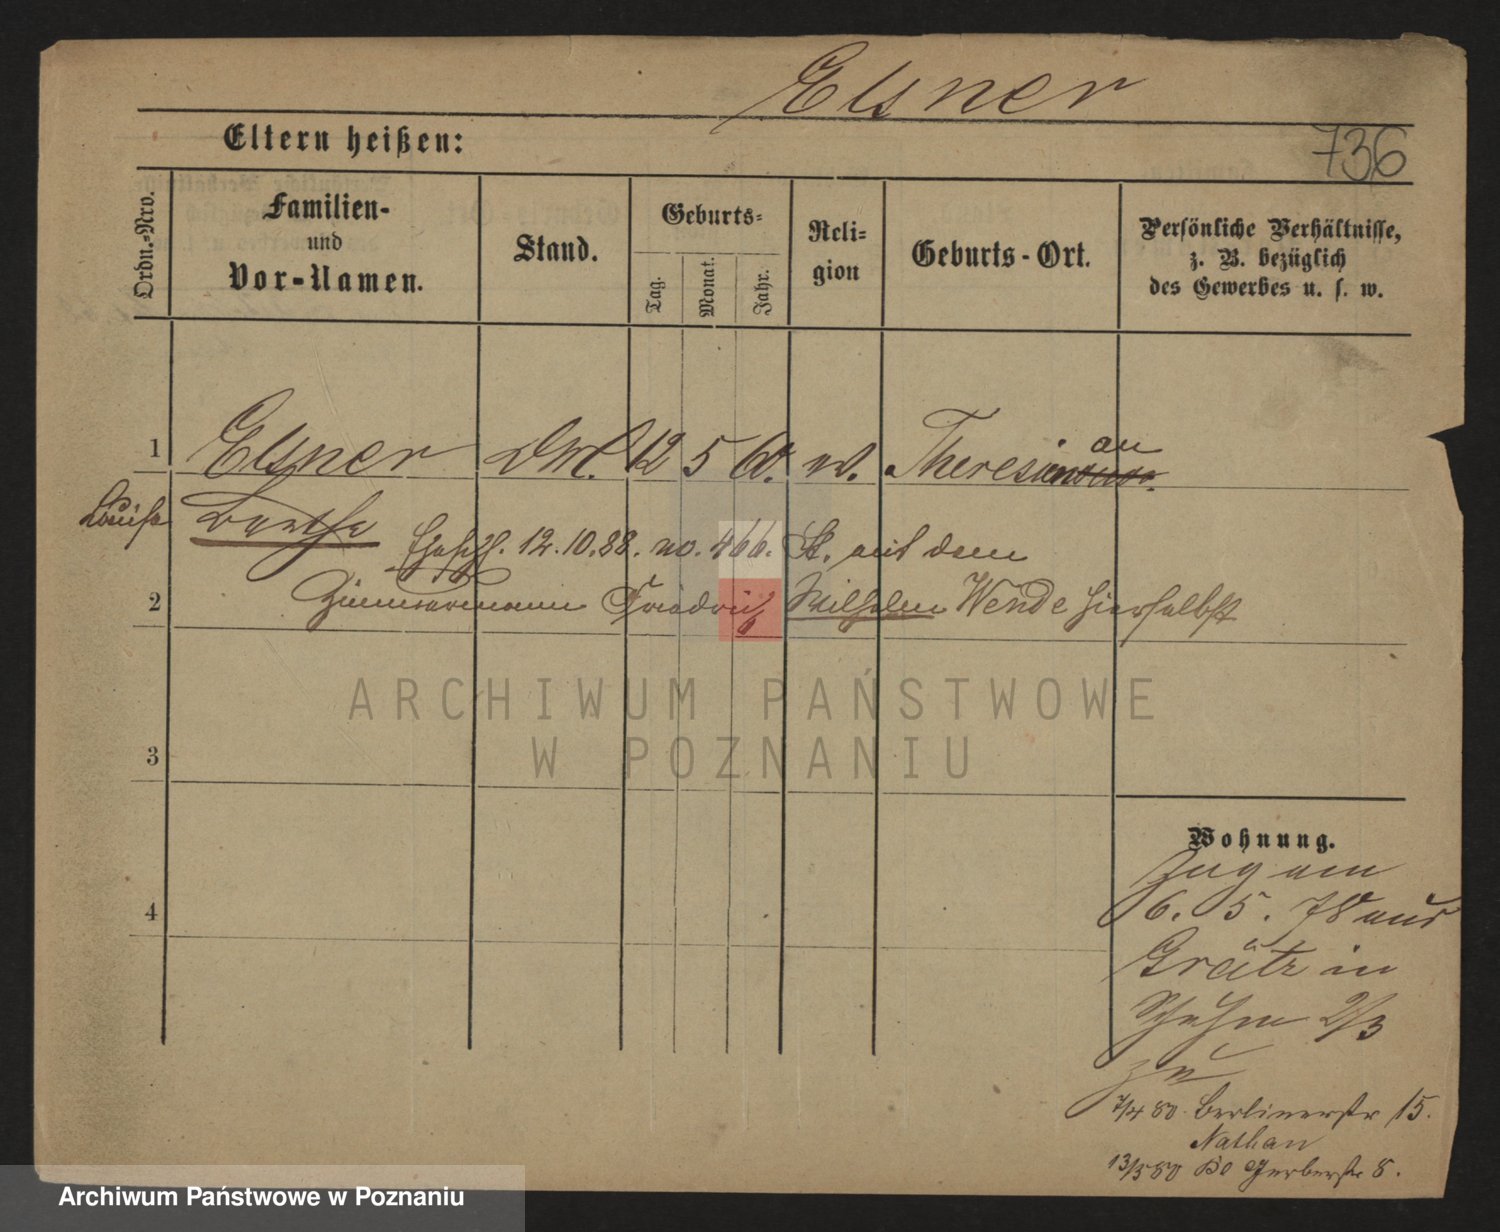 Elsner
736
Eltern heißen:
Ordn.-Nro.
Familien-
und
Vor-Namen.
Stand.
Geburts-
Tag.
Monat.
Jahr.
Reli-
gion
Geburts-Ort.
Persönliche Verhältnisse,
z. B. bezüglich
des Gewerbes u. s. w.
1 Elsner 12 5 60. Theresian
Louise Berthe
12.10.88. no. 466. St. mit dem
2 Zimmermann Friedrich Wilhelm Wende hierselbst
ARCHIWUM PAŃSTWOWE
W POZNANIU
3
4
Wohnung.
Zug am
6. 5. 78 aus
Grätz in
2/3
zu
7/4 80. Berlinerstr 15.
Nathan
13/5 80 Gerberstr 8.
Archiwum Państwowe w Poznaniu